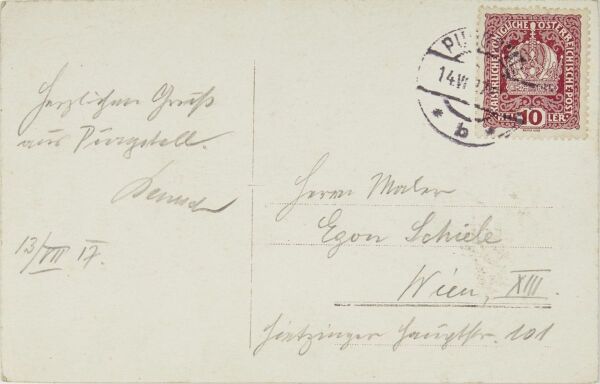 Herzlichen Gruß
aus Purgstall.
13/VII 17.
KAISERLICHE KÖNIGLICHE ÖSTERREICHISCHE POST
10
LER
14.VII
* b *
Herrn Maler
Egon Schiele
Wien, XIII.
Hietzinger Hauptstr. 101